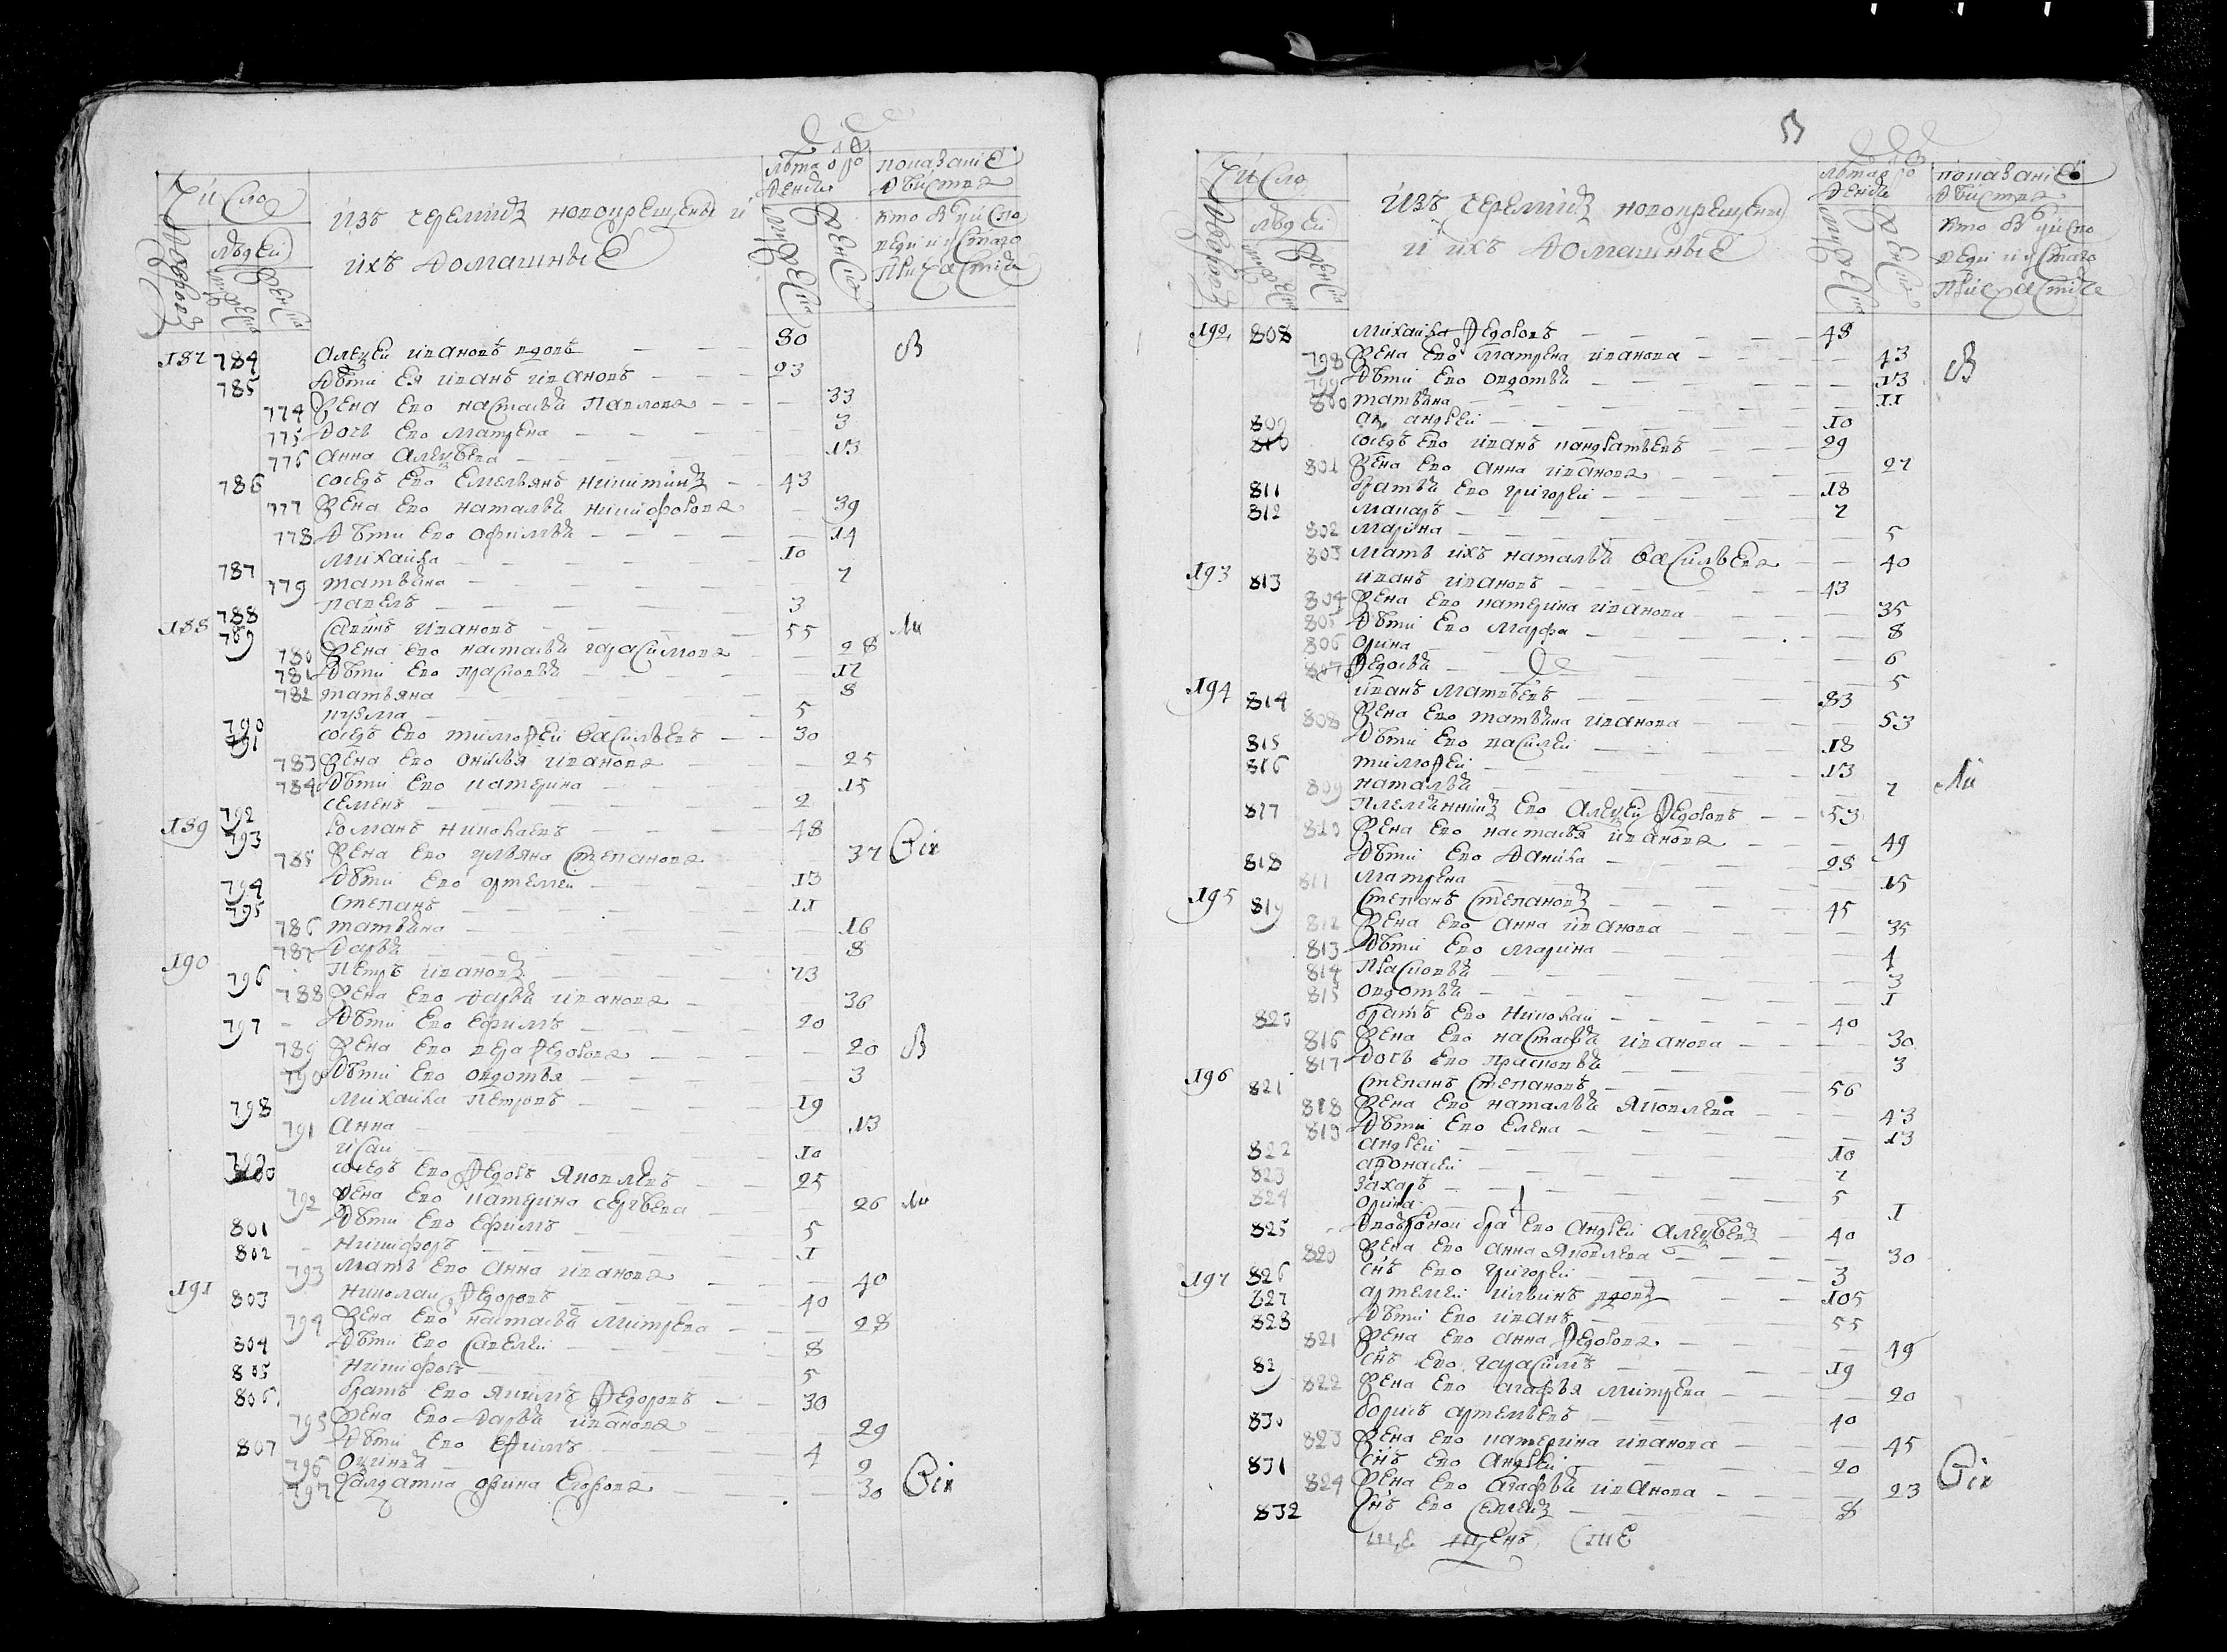 Число
людей
изъ черемисъ новокрещены и
ихъ домашные
лѣта ро
ждени
показание
дѣиства
кто въ число
187 784 Алеѯеи Ивановъ вдовъ 80
785 дѣти ея Иванъ Ивановъ 23
774 жена ево Настасья Павлова 33
775 дочь ево Матрена 3
776 Анна Алеѯѣева 13
786 соседъ ево Емельянъ Никитинъ 43
777 жена ево Наталья Никифорова 39
778 дѣти ево Офимья 14
787 Михаила 10
779 Татьяна 7
788 Павелъ 3
188 789 Савинъ Ивановъ 55
780 жена ево Настасья Гарасимова 28
781 дѣти ево Прасковья 12
782 Татьяна 8
790 Кузма 5
791 соседъ ево Тимоѳеи Васильевъ 30
783 жена ево Ивановна 25
784 дѣти ево Катерина 15
792 Семенъ 2
189 793 Романъ Николаевъ 48
785 жена ево Ульяна Степанова 37
794 дѣти ево Артемеи 13
795 Степанъ 11
786 Татьяна 16
787 Дарья 8
190 796 Петръ Ивановъ 73
788 жена ево Дарья Иванова 36
797 дѣти ево Ефимъ 20
789 жена ево Вера Ѳедорова 20
790 дѣти ево Овдотья 3
798 Михаила Петровъ 19
791 Анна 13
799 Исаи 10
800 соседъ ево Ѳедоръ Яковлевъ 25
792 жена ево Катерина Сергѣева 26
801 дѣти ево Ефимъ 5
802 Никифоръ 1
793 мать ево Анна Иванова 40
191 803 Николаи Ѳедоровъ 40
794 жена ево Настасья Митрева 28
804 дѣти ево Савелеи 8
805 Никифоръ 5
806 братъ ево Якимъ Ѳедоровъ 30
795 жена ево Дарья Иванова 29
807 дѣти ево Ефимъ 4
796 2
797 салдатка Орина Егорова 30
Число
людей
изъ черемисъ новокрещены
и ихъ домашные
лѣта ро
ждени
показание
дѣиства
кто въ число
192 808 Михаила Ѳедоровъ 48
798 жена ево Матрена Иванова 43
799 дѣти ево Овдотья 13
800 Татьяна 11
809 Андреи 10
810 соседъ ево Иванъ Кандратьевъ 29
801 жена ево Анна Иванова 27
811 братья ево Григореи 18
812 Макаръ 7
802 Марина 5
803 мать ихъ Наталья Васильева 40
193 813 Иванъ Ивановъ 43
804 жена ево Катерина Иванова 35
805 дѣти ево Марфа 8
806 Орина 6
807 Ѳедосья 5
194 814 Иванъ Матвѣевъ 83
808 жена ево Татьяна Иванова 53
815 дѣти ево Василеи 18
816 Тимоѳеи 13
809 Наталья 7
817 племянникъ ево Алеѯеи Ѳедоровъ 53
810 жена ево Настасья Иванова 49
818 дѣти ево Данила 28
811 Матрена 15
195 819 Степанъ Степановъ 45
812 жена ево Анна Иванова 35
813 дѣти ево Марина 4
814 Прасковья 3
815 Овдотья 1
820 братъ ево Николаи 40
816 жена ево Настасья Иванова 30
817 дочь ево Прасковья 3
196 821 Степанъ Степановъ 56
818 жена ево Наталья Яковлева 43
819 дѣти ево Елена 13
822 Андреи 10
823 Аѳонасеи 7
824 Захаръ 5
Орина 1
825 двоюрднои бра ево Андреи Алеѯѣевъ 40
820 жена ево Анна Яковлева 30
826 снъ ево Григореи 3
197 827 Артемеи Ильинъ вдовъ 105
828 дѣти ево Иванъ 55
821 жена ево Анна Ѳедорова 49
829 снъ ево Гарасимъ 19
822 жена ево Агафья Митрева 20
830 Борисъ Артемьевъ 40
823 жена ево Катерина Иванова 45
831 снъ ево Андреи 20
824 жена ево Агафья Иванова 23
832 снъ ево 8